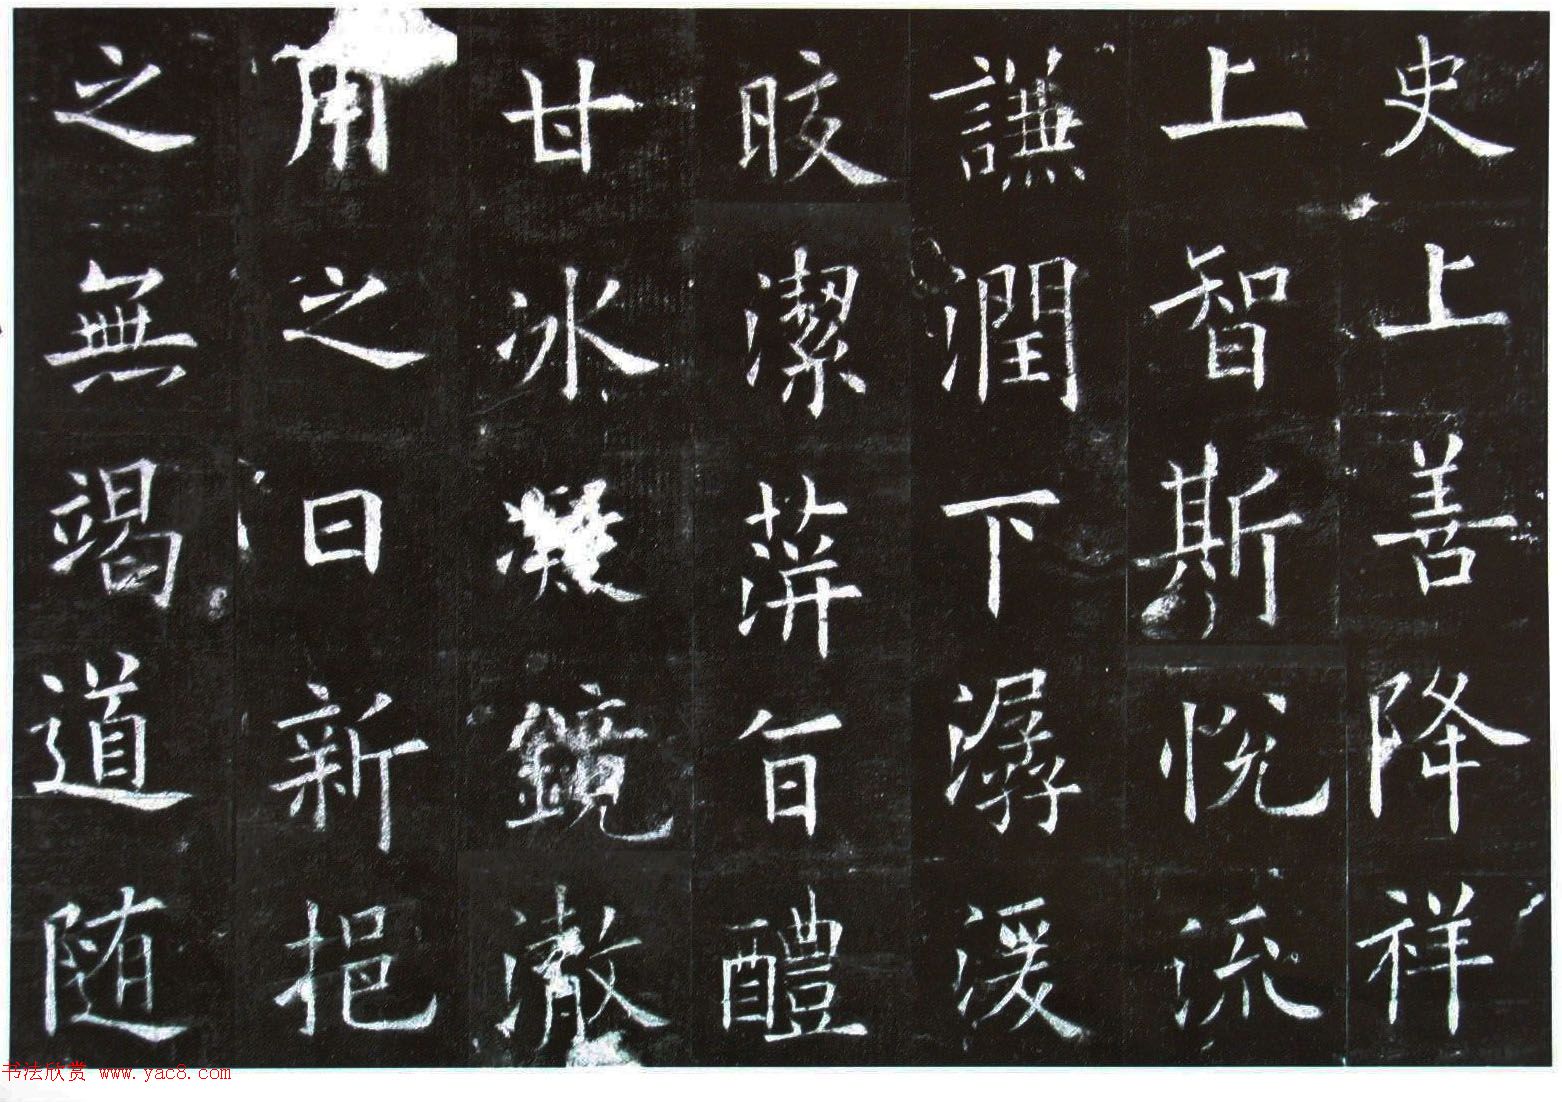 史上善降祥
上智斯悅流
謙潤下潺湲
晈潔萍旨醴
甘冰凝鏡澈
用之日新挹
之無竭道随
书法欣赏 www.yac8.com